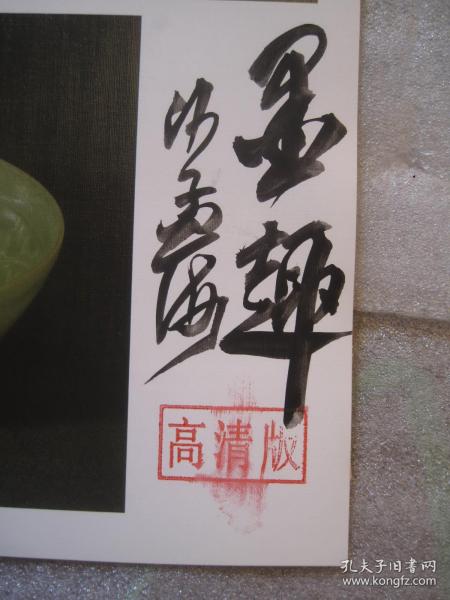 墨趣
沙孟海
高清版
孔夫子旧书网
www.kongfz.com